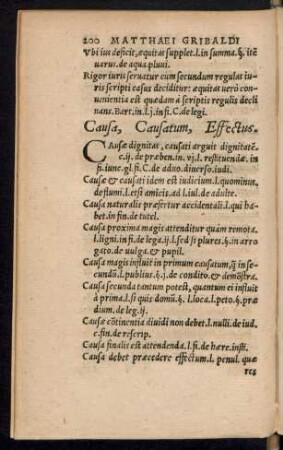 200 MATTHAEI GRIBALDI
Vbi ius deficit, æquitas supplet. l. in summa. §. itẽ
uarus. de aqua. pluui.
Rigor iuris seruatur cum secundum regulas iu-
ris scripti casus deciditur: æquitas uerò con-
uenientia est quædam à scriptis regulis decli
nans. Bart. in. l. j. in fi. C. de legi.
Causa, Causatum, Effectus.
CAusæ dignitas, causati arguit dignitatẽ.
c. ij. de præben. in. vj. l. restituendæ. in
fi. iunc. gl. fi. C. de aduo. diuerso. iudi.
Causæ & causati idem est iudicium. l. quominus.
de flumi. l. etsi amicis. ad l. iul. de adulte.
Causa naturalis præfertur accidentali. l. qui ha-
bet. in fin. de tutel.
Causa proxima magis attenditur quàm remota.
l. ligni. in fi. de lega. ij. l. sed si plures. §. in arro
gato. de uulga. & pupil.
Causa magis influit in primum causatum, q̃ in se-
cundũ. l. publius. §. j. de condito. & demõstra.
Causa secunda tantum potest, quantum ei influit
à prima. l. si quis domũ. §. l. loca. l. peto. §. præ
dium. de leg. ij.
Causæ cõtinentia diuidi non debet. l. nulli. de iud.
c. fin. de rescrip.
Causa finalis est attendenda. l. fi. de hære. insti.
Causa debet præcedere effectum. l. penul. quæ
res